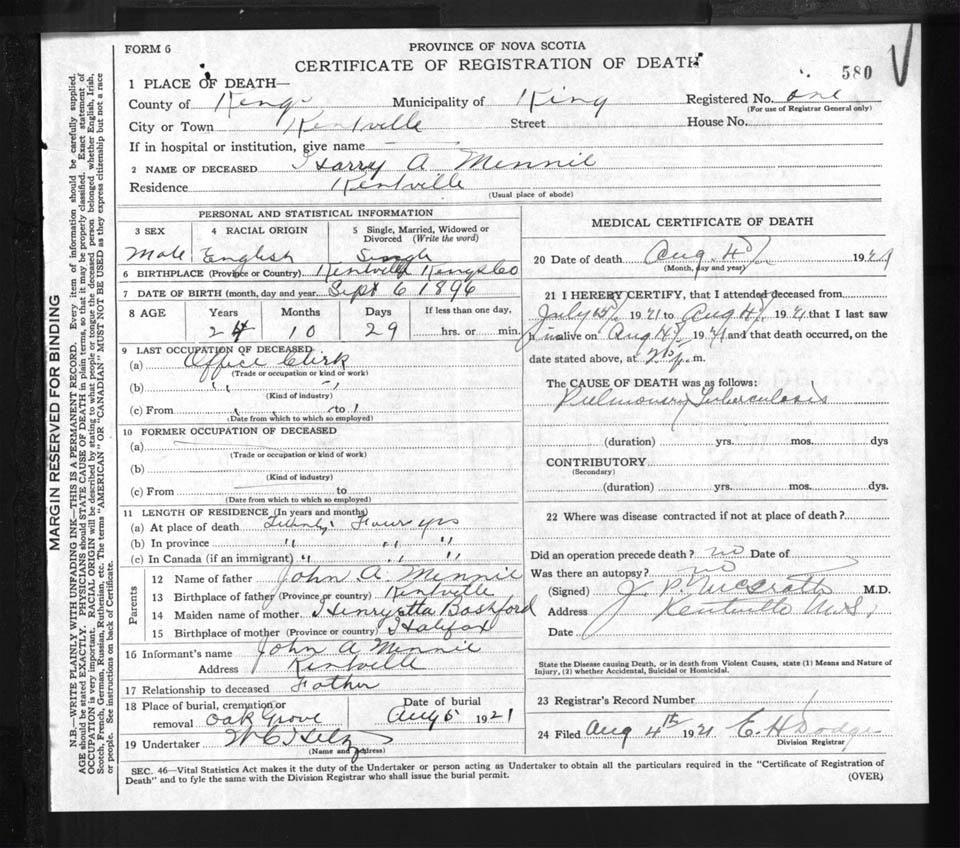 FORM 6
PROVINCE OF NOVA SCOTIA
CERTIFICATE OF REGISTRATION OF DEATH
580
1 PLACE OF DEATH—
County of Kings Municipality of King Registered No. one
(For use of Registrar General only)
City or Town Kentville Street House No.
If in hospital or institution, give name
2 NAME OF DECEASED Harry A Minnie
Residence Kentville
(Usual place of abode)
PERSONAL AND STATISTICAL INFORMATION
3 SEX 4 RACIAL ORIGIN 5 Single, Married, Widowed or Divorced (Write the word)
Male English Single
6 BIRTHPLACE (Province or Country) Kentville Kings Co
7 DATE OF BIRTH (month, day and year) Sept 6 1896
8 AGE Years Months Days If less than one day,
24 10 29 hrs. or min.
9 LAST OCCUPATION OF DECEASED
(a) Office Clerk
(Trade or occupation or kind of work)
(b) " "
(Kind of industry)
(c) From to
(Date from which to which so employed)
10 FORMER OCCUPATION OF DECEASED
(a)
(Trade or occupation or kind of work)
(b)
(Kind of industry)
(c) From to
(Date from which to which so employed)
11 LENGTH OF RESIDENCE (In years and months)
(a) At place of death Twenty Four yrs
(b) In province " " "
(c) In Canada (if an immigrant) " " "
Parents
12 Name of father John A. Minnie
13 Birthplace of father (Province or country) Kentville
14 Maiden name of mother Henryetta Bashford
15 Birthplace of mother (Province or country) Halifax
16 Informant's name John A Minnie
Address Kentville
17 Relationship to deceased Father
18 Place of burial, cremation or removal Oak Grove
Date of burial Aug 5 1921
19 Undertaker W C
(Name and address)
MEDICAL CERTIFICATE OF DEATH
20 Date of death Aug. 4 1921
(Month, day and year)
21 I HEREBY CERTIFY, that I attended deceased from
July 1921 to Aug 4 1921 that I last saw
him alive on Aug 4 1921 and that death occurred, on the
date stated above, at m.
The CAUSE OF DEATH was as follows:
Pulmonary Tuberculosis
(duration) yrs. mos. dys
CONTRIBUTORY
(Secondary)
(duration) yrs. mos. dys.
22 Where was disease contracted if not at place of death?
Did an operation precede death? no Date of
Was there an autopsy? no
(Signed) J. P. McGrath M.D.
Address Kentville N.S.
Date
State the Disease causing Death, or in death from Violent Causes, state (1) Means and Nature of
Injury, (2) whether Accidental, Suicidal or Homicidal.
23 Registrar's Record Number 1
24 Filed Aug 4th 1921 E. H Dodge
Division Registrar
SEC. 46—Vital Statistics Act makes it the duty of the Undertaker or person acting as Undertaker to obtain all the particulars required in the "Certificate of Registration of
Death" and to fyle the same with the Division Registrar who shall issue the burial permit.
(OVER)
MARGIN RESERVED FOR BINDING
N.B.—WRITE PLAINLY WITH UNFADING INK—THIS IS A PERMANENT RECORD. Every item of information should be carefully supplied.
AGE should be stated EXACTLY. PHYSICIANS should STATE CAUSE OF DEATH in plain terms, so that it may be properly classified. Exact statement of
OCCUPATION is very important. RACIAL ORIGIN will be described by stating to what people or tongue the deceased person belonged whether English, Irish,
Scotch, French, German, Russian, Ruthenian, etc. The terms "AMERICAN" OR "CANADIAN" MUST NOT BE USED as they express citizenship but not a race
or people. See instructions on back of Certificate.